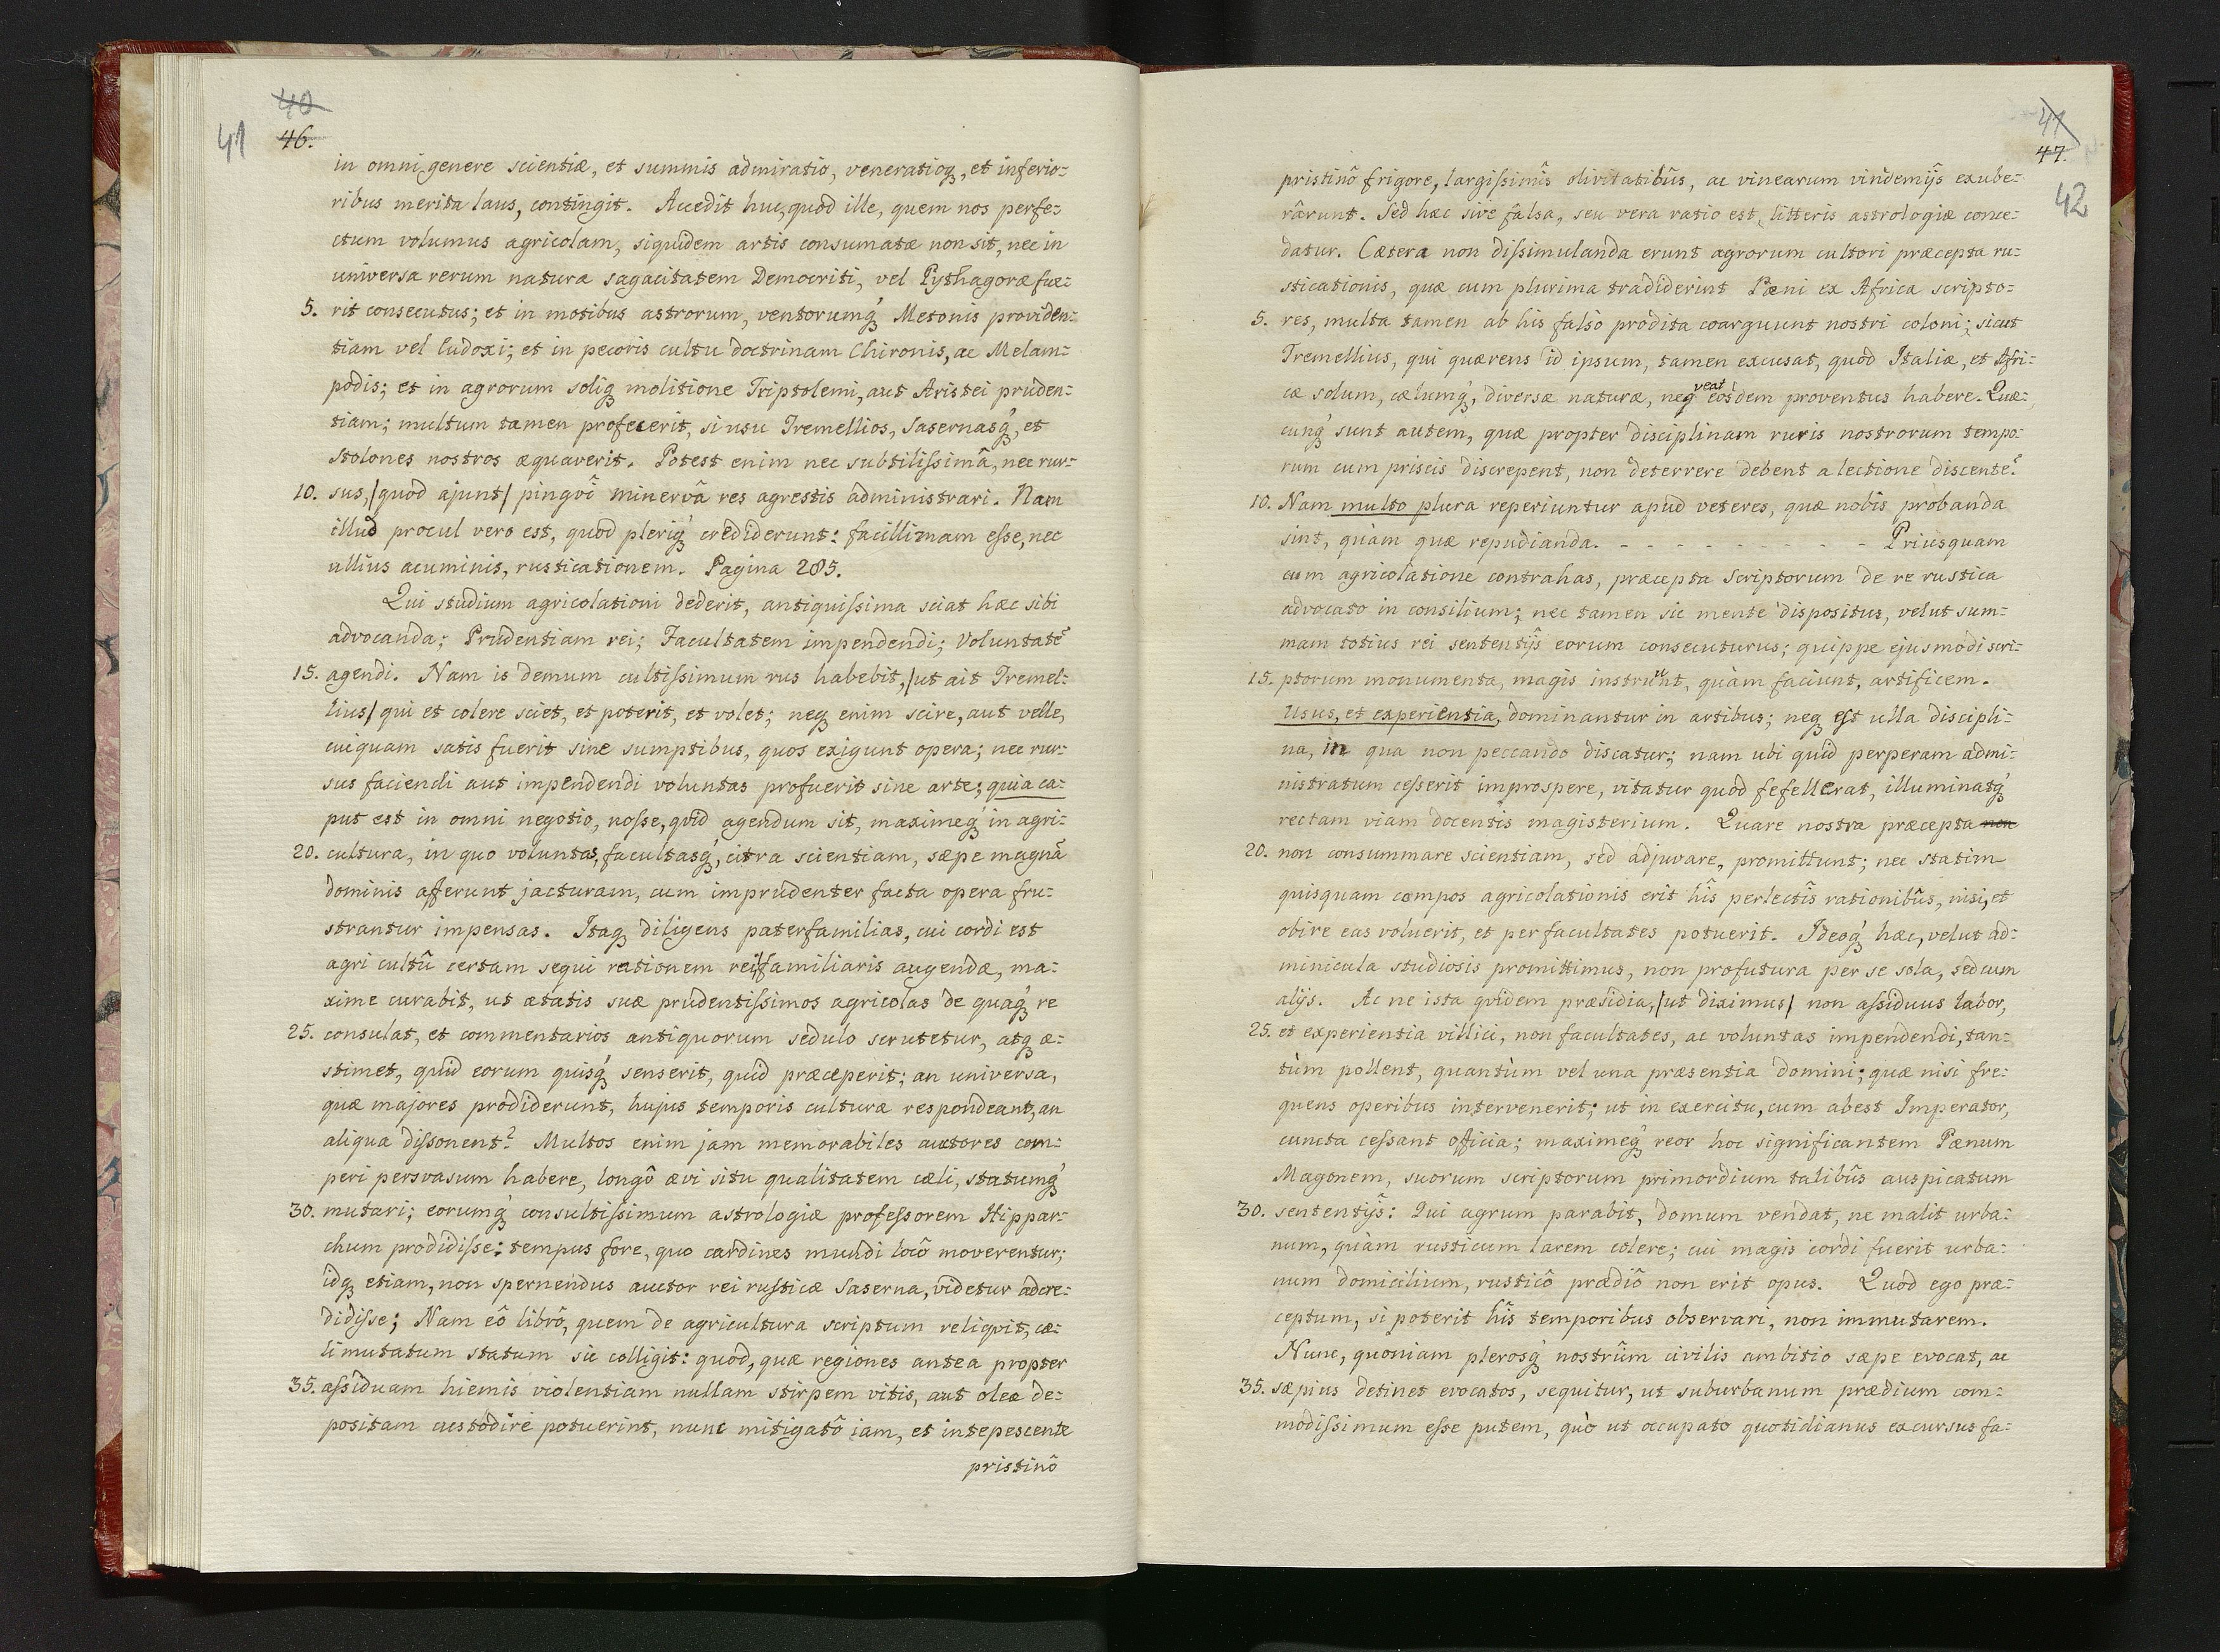 40
41
46.
in omni genere scientiæ, et summis admiratio, veneratioq, et inferio:
ribus merita laus, contingit. Accedit huc, quod ille, quem nos perfe:
ctum volumus agricolam, siquidem artis consumatæ non sit, nec in
universa rerum natura sagacitatem Democriti, vel Pythagoræ fue:
5. rit consecutus; et in motibus astrorum, ventorumq́ Metonis providen:
tiam vel Eudoxi; et in pecoris cultu doctrinam Chironis, ac Melam:
podis; et in agrorum soliq molitione Triptolemi, aut Aristei pruden:
tiam; multum tamen profecerit, si usu Tremellios, Sasernasq́, et
Stolones nostros æquaverit. Potest enim nec subtilissimâ, nec rur:
10. sus, /quod ajunt/ pingvî minervâ res agrestis administrari. Nam
illud procul vero est, quod pleriq́ crediderunt: facillimam esse, nec
ullius acuminis, rusticationem. Pagina 285.
Qui studium agricolationi dederit, antiquissima sciat hæc sibi
advocanda; Prudentiam rei; Facultatem impendendi; Voluntatẽ
15. agendi. Nam is demum cultissimum rus habebit, /ut ait Tremel:
lius/ qui et colere sciet, et poterit, et volet; neq enim scire, aut velle,
cuiquam satis fuerit sine sumptibus, quos exigunt opera; nec rur:
sus faciendi aut impendendi voluntas profuerit sine arte; quia ca:
put est in omni negotio, nosse, qvid agendum sit, maximeq in agri:
20. cultura, in quo voluntas, facultasq́, citra scientiam, sæpe magnã
dominis afferunt jacturam, cum imprudenter facta opera fru:
strantur impensas. Itaq diligens paterfamilias, cui cordi est
agri cultû certam sequi rationem rei familiaris augendæ, ma:
xime curabit, ut ætatis suæ prudentissimos agricolas de quaq́ re
25. consulat, et commentarios antiquorum sedulo scrutetur, atq æ:
stimet, quid eorum quisq́ senserit, quid præceperit; an universa,
quæ majores prodiderunt, hujus temporis culturæ respondeant, an
aliqua dissonent? Multos enim jam memorabiles auctores com:
peri persvasum habere, longô ævi situ qualitatem cæli, statumq́
30. mutari; eorumq́ consultissimum astrologiæ professorem Hippar:
chum prodidisse: tempus fore, quo cardines mundi locô moverentur;
idq etiam, non spernendus auctor rei rusticæ Saserna, videtur adcre:
didisse; Nam eô librô, quem de agricultura scriptum reliqvit, cæ:
li mutatum statum sic colligit: quod, quæ regiones antea propter
35. assiduam hiemis violentiam nullam stirpem vitis, aut oleæ de:
positam custodire potuerint, nunc mitigatô iam, et intepescente
pristinô
41
47.
42
pristinô frigore, largissimîs olivitatibûs, ac vinearum vindemijs exube:
rârunt. Sed hæc sive falsa, seu vera ratio est, litteris astrologiæ conce:
datur. Cætera non dissimulanda erunt agrorum cultori præcepta ru:
sticationis, quæ cum plurima tradiderint Pæni ex Africa scripto:
5. res, multa tamen ab his falso prodita coarguunt nostri coloni; sicut
Tremellius, qui quærens id ipsum, tamen excusat, quod Italiæ, et Afri:
cæ solum, cælumq́, diversæ naturæ, neq veat eosdem proventus habere. Quæ:
cunq́ sunt autem, quæ propter disciplinam ruris nostrorum tempo:
rum cum priscis discrepent, non deterrere debent a lectione discentẽ.
10. Nam multo plura reperiuntur apud veteres, quæ nobis probanda
sint, quàm quæ repudianda. - - - - - - - - - - Priusquam
cum agricolatione contrahas, præcepta scriptorum de re rustica
advocato in consilium; nec tamen sic mente dispositus, velut sum:
mam totius rei sententijs eorum consecuturus; quippe ejusmodi scri:
15. ptorum monumenta, magis instruunt, quàm faciunt, artificem.
Usus, et experientia, dominantur in artibus; neq est ulla discipli:
na, in qua non peccando discatur; nam ubi quid perperam admi:
nistratum cesserit improspere, vitatur quod fefellerat, illuminatq́
rectam viam docentis magisterium. Quare nostra præcepta non
20. non consummare scientiam, sed adjuvare, promittunt; nec statim
quisquam compos agricolationis erit hîs perlectîs rationibûs, nisi, et
obire eas voluerit, et per facultates potuerit. Ideoq́ hæc, velut ad:
minicula studiosis promittimus, non profutura per se sola, sed cum
alijs. Ac ne ista qvidem præsidia, /ut diximus/ non assiduus labor,
25. et experientia villici, non facultates, ac voluntas impendendi, tan:
tùm pollent, quantùm vel una præsentia domini; quæ nisi fre:
quens operibus intervenerit; ut in exercitu, cum abest Imperator,
cuncta cessant officia; maximeq́ reor hoc significantem Pænum
Magonem, suorum scriptorum primordium talibûs auspicatum
30. sententijs: Qui agrum parabit, domum vendat, ne malit urba:
num, quàm rusticum larem colere; cui magis cordi fuerit urba:
num domicilium, rusticô prædiô non erit opus. Quod ego præ:
ceptum, si poterit hîs temporibus observari, non immutarem.
Nunc, quoniam plerosq́ nostrûm civilis ambitio sæpe evocat, ac
35. sæpius detinet evocatos, sequitur, ut suburbanum prædium com:
modissimum esse putem, quò ut occupato quotidianus excursus fa: